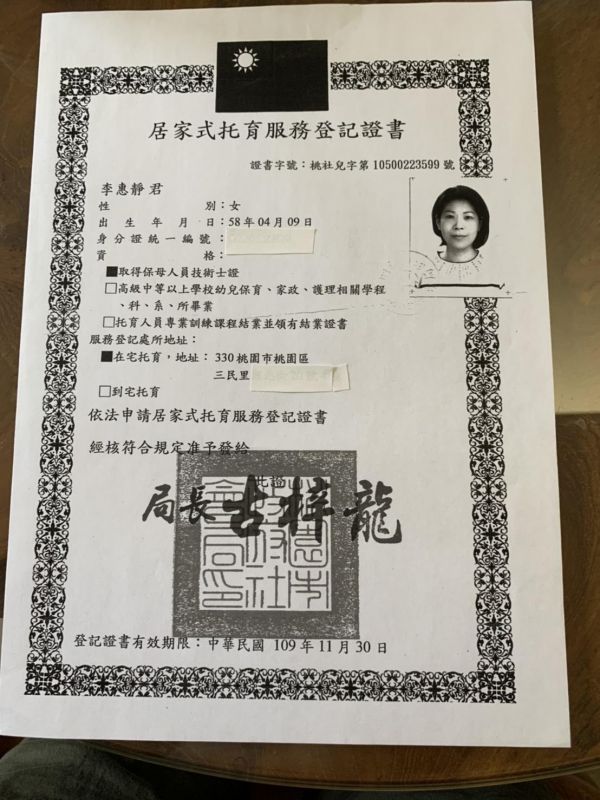 居家式托育服務登記證書
證書字號：桃社兒字第10500223599號
李惠靜 君
性別：女
出生年月日：58年04月09日
身分證統一編號：
資格：
■取得保母人員技術士證
□高級中等以上學校幼兒保育、家政、護理相關學程
、科、系、所畢業
□托育人員專業訓練課程結業並領有結業證書
服務登記處所地址：
■在宅托育，地址：330桃園市桃園區
三民里
□到宅托育
依法申請居家式托育服務登記證書
經核符合規定准予發給
此證
局長 古梓龍
登記證書有效期限：中華民國 109年11月30日